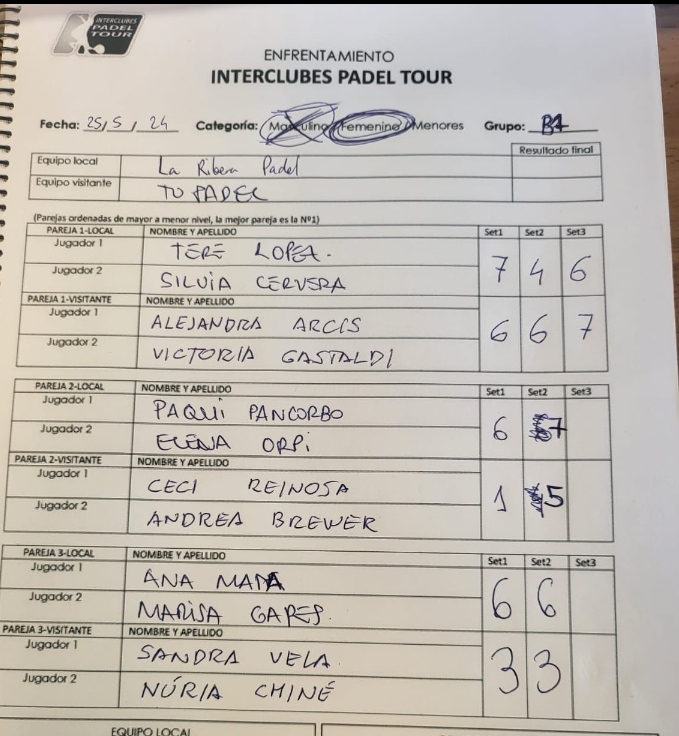 INTERCLUBES
PADEL
TOUR
ENFRENTAMIENTO
INTERCLUBES PADEL TOUR
Fecha: 25/5/24 Categoría: Masculino/Femenino/Menores Grupo: B1
Resultado final
Equipo local La Ribera Padel
Equipo visitante TU PADEL
(Parejas ordenadas de mayor a menor nivel, la mejor pareja es la Nº1)
PAREJA 1-LOCAL NOMBRE Y APELLIDO Set1 Set2 Set3
Jugador 1 TERE LOPEZ.
Jugador 2 SILVIA CERVERA 7 4 6
PAREJA 1-VISITANTE NOMBRE Y APELLIDO
Jugador 1 ALEJANDRA ARCIS 6 6 7
Jugador 2 VICTORIA GASTALDI
PAREJA 2-LOCAL NOMBRE Y APELLIDO Set1 Set2 Set3
Jugador 1 PAQUI PANCORBO
Jugador 2 ELENA ORPI 6 7
PAREJA 2-VISITANTE NOMBRE Y APELLIDO
Jugador 1 CECI REINOSA 1 5
Jugador 2 ANDREA BREWER
PAREJA 3-LOCAL NOMBRE Y APELLIDO Set1 Set2 Set3
Jugador 1 ANA
Jugador 2 MARISA 6 6
PAREJA 3-VISITANTE NOMBRE Y APELLIDO
Jugador 1 SANDRA VELA. 3 3
Jugador 2 NÚRIA CHINÉ
EQUIPO LOCAL